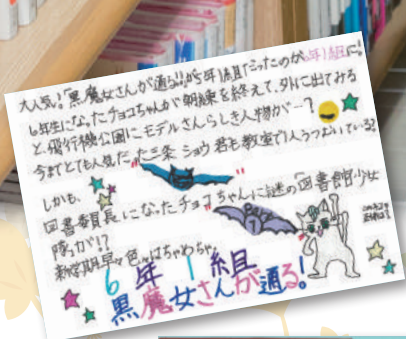 大人気!「黒魔女さんが通る!!」が5年1組だったのが6年1組に!
6年生になったチョコちゃんが朝練を終えて、外に出てみる
と、飛行機公園にモデルさんらしき人物が…?
今までとても人気だった三条 ショウ君も教室で1人うつむいている?
しかも、
図書委員長になったチョコちゃんに謎の「図書館少女
隊」が!?
新学期早々色々はちゃめちゃ。
6年1組
黒魔女さんが通る!